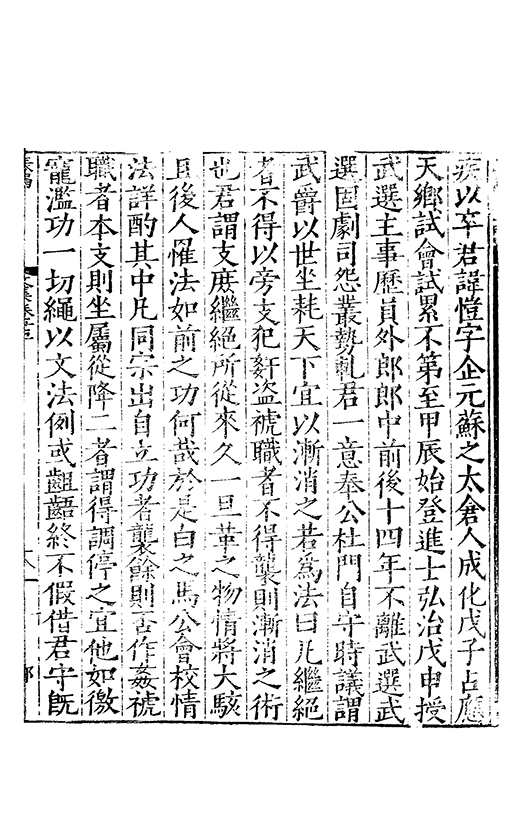 疾以卒君諱愷字企元蘇之太倉人成化戊子占應
天鄉試會試累不第至甲辰始登進士弘治戊申授
武選主事歷員外郎郎中前後十四年不離武選武
選固劇司怨叢勢軋君一意奉公杜門自守時議謂
武爵以世坐耗天下宜以漸消之若爲法曰凡繼絕
者不得以旁支犯姧盗褫職者不得襲則漸消之術
也君謂支庶繼絕所從來久一旦革之物情將大駭
且後人罹法如前之功何哉於是白之馬公會校情
法詳酌其中凡同宗出自立功者襲餘則否作姦褫
職者本支則坐屬從降二者謂得調停之宜他如徼
寵濫功一切繩以文法例或齟齬終不假借君守旣